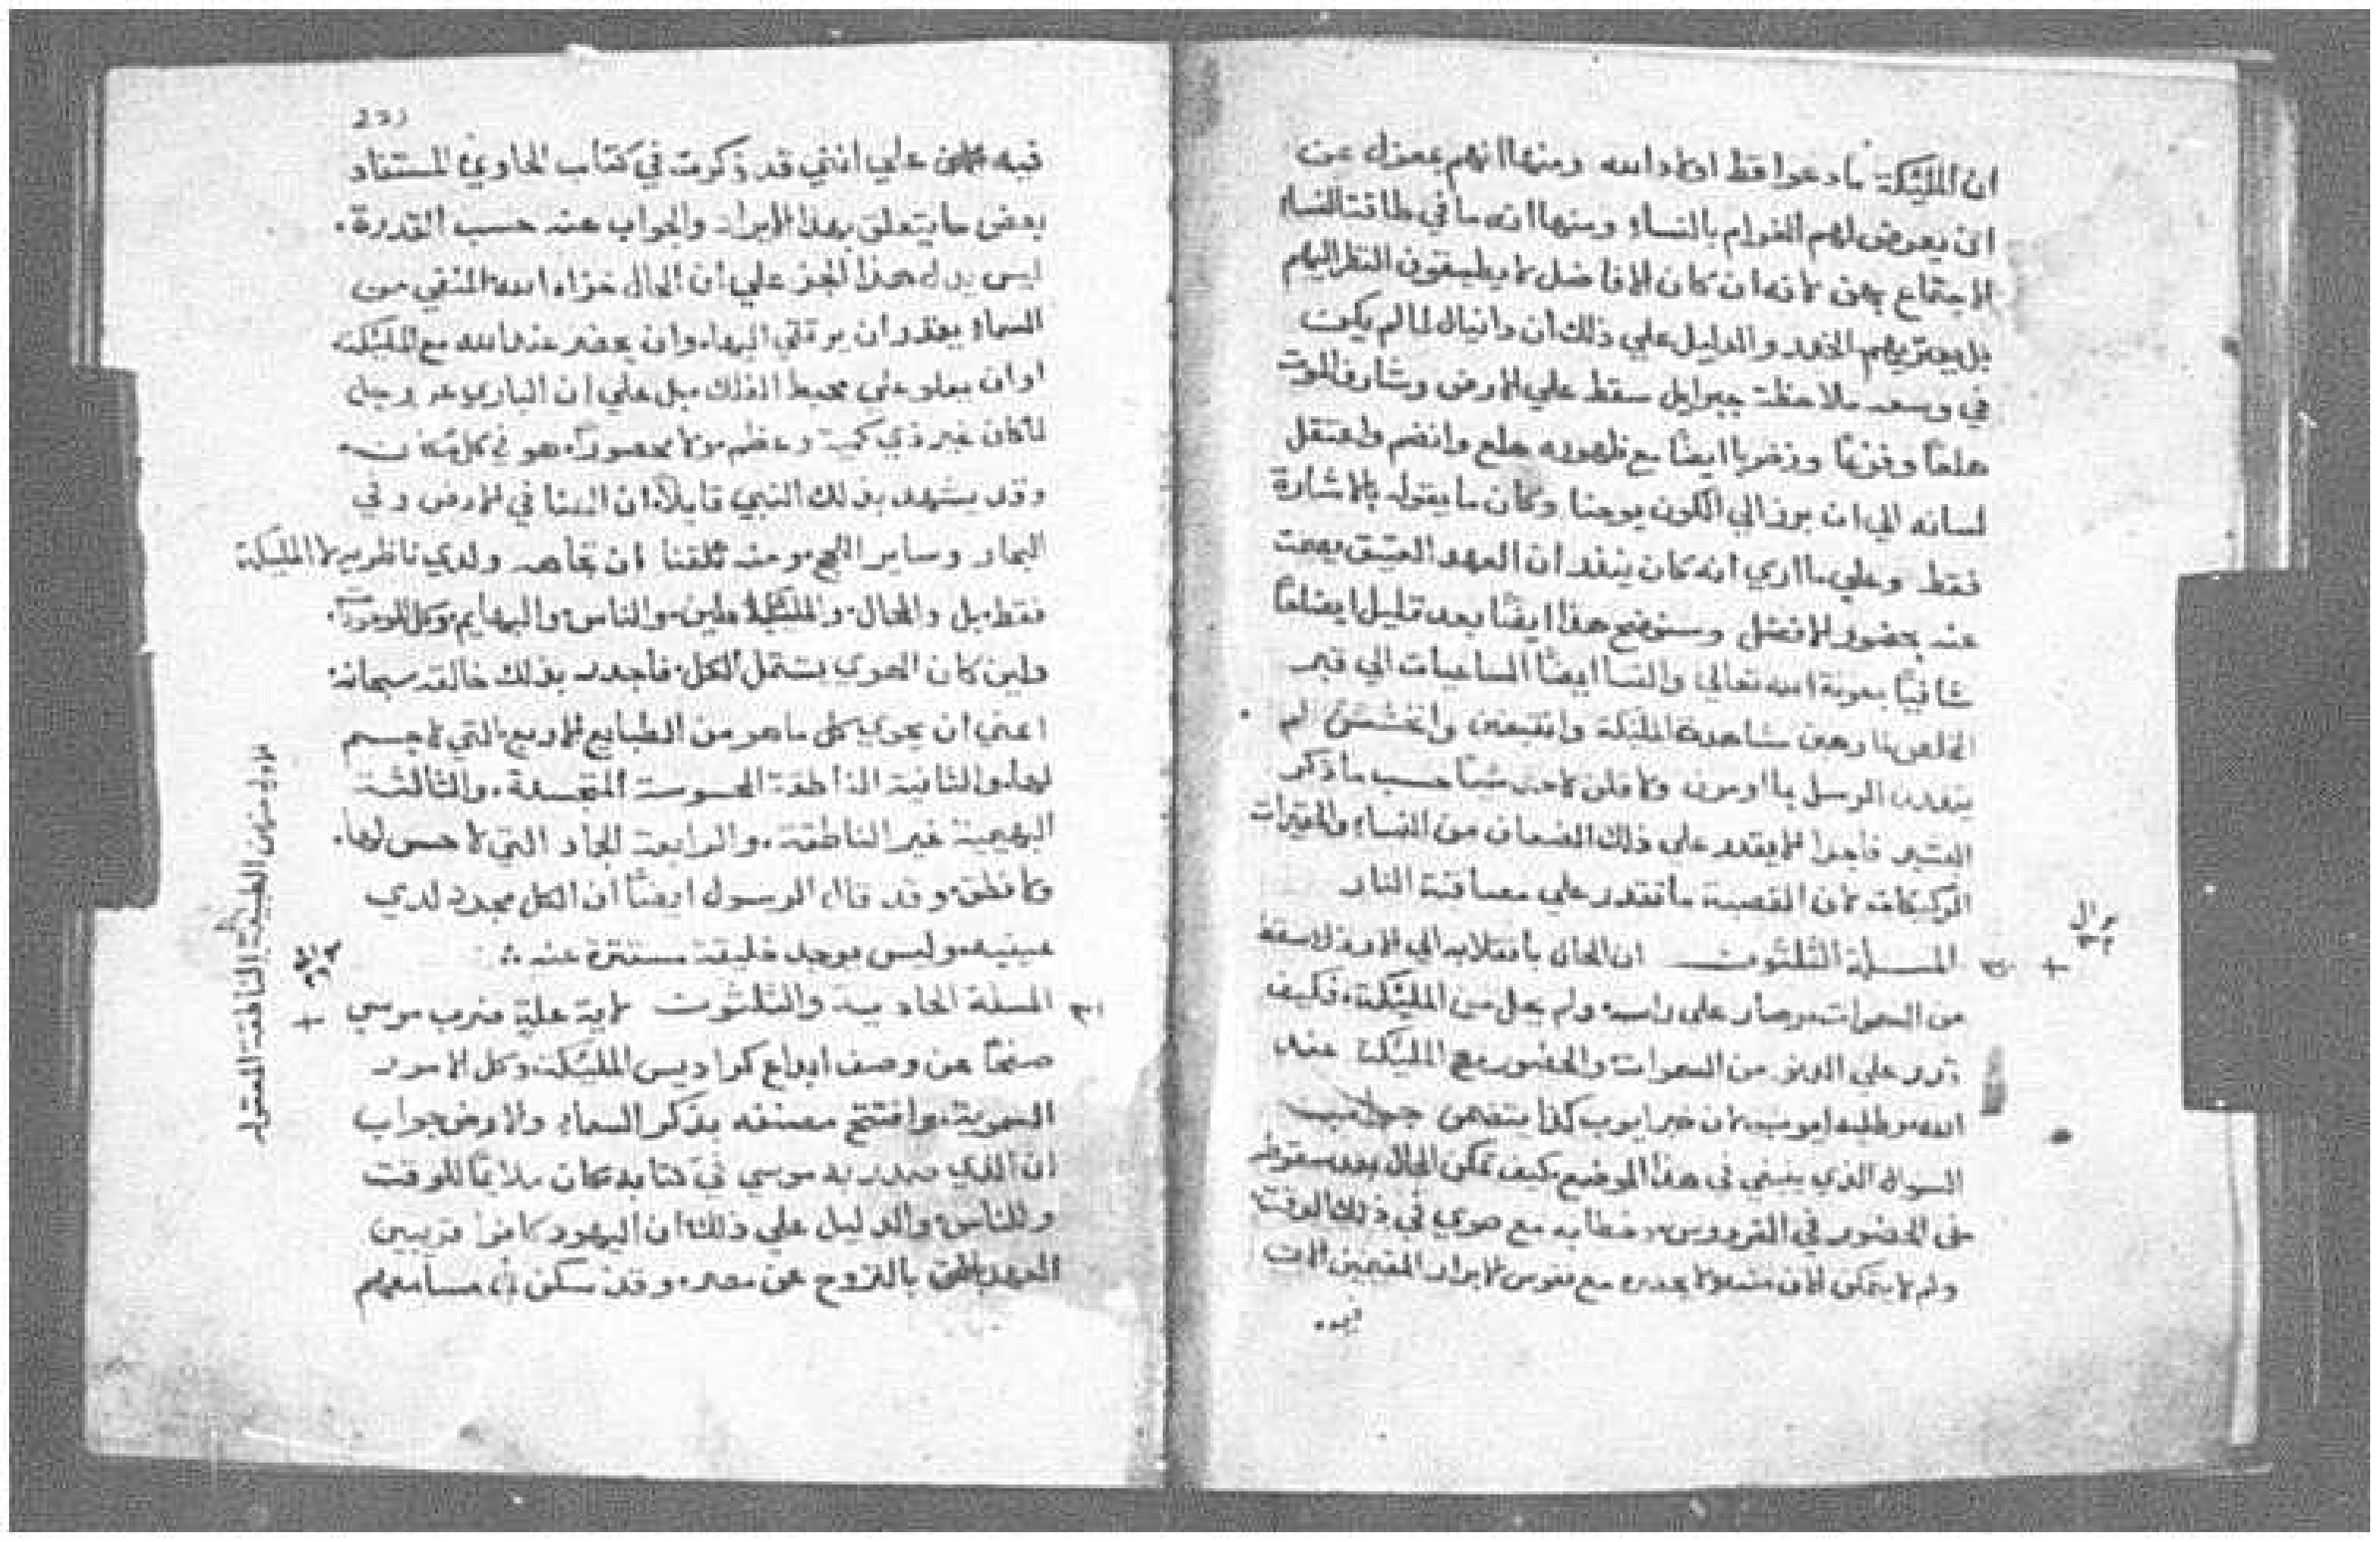 ان المليكة ما دعوا قط اولاد الله ومنها انهم بمعزل عن
ان يعرض لهم الغرام بالنساء ومنها انه ما في طاقة النساء
الاجتماع بهن لانه ان كان الافاضل لا يطيقون النظر اليهم
بل يعتريهم الخدر والدليل علي ذلك ان دانيال لما لم يكن
في وسعه ملاحظة جبرايل سقط علي الارض وشارف الموت
هلعًا وفزعًا وزخريا ايضًا مع ظهوره هلع وانضم واعتقل
لسانه الي ان برز الي الكون يوحنا وكان ما يقوله بالاشارة
فقط وعلي ما اري انه كان ينذر ان العهد العتيق يصمت
عند حضور الافضل وسنوضح هذا ايضًا بعد قليل ايضاحًا
شافيًا بمعونة الله تعالي والنسا ايضًا الساعيات الي قبر
المخلص شاهدن المليكة
ينذرن الرسل بما اومرن ولا قلن لاحد شيًا حسب ما ذكر
البشير فاجدر الا يقدر علي ذلك الضعاف من النساء
الركيكات لان القصبة ما تقتدر علي مصافتة النار
المسلة الثلثون ان المحال بانقلابه الي الارض لا سقط
من السموات وصار علي راسه ولم يحل بين المليكة فكيف
ورد علي الرب من السموات والحضور مع المليكة عند
الله وطلبه ايوب لان خبر ايوب كذا يتضمن جواب
السوال الذي ينبغي في هذا الموضع كيف تمكن المحال بعد سقوطه
من الحضور في الفردوس وخطابه مع حوي في ذلك الوقت
ولم لا يتمكن الان مع نفوس الابرار المقيمين الان
فيه
فيه علي انني قد ذكرت في كتاب الحاوي المستفاد
بعض ما يتعلق بهذا الايراد والجواب عنه حسب القدرة
ليس يدل هذا الخبر علي ان المحال خزاه الله المنفي من
السماء يقدر ان يرتقي اليها وان يحضر عند الله مع المليكة
او ان يعلو علي محيط الفلك بل علي ان الباري عز وجل
لما كان غير ذي كمية وعظم ولا محصورًا هو في كل مكان
وقد يشهد بذلك النبي قايلًا ان الهنا في الارض وفي
البحار وساير اللجج ولدي ناظريه لا المليكة
فقط بل والمحال والشياطين والناس والبهايم
ولين كان الهوي يشتمل الكل فاجدر بذلك خالقه سبحانه
اعني ان يحوي كل ما هو من الطبايع الاربع التي لا جسم
لها والثانية الناطقة المحسوسة المتجسدة والثالثة
البهيمية غير الناطقة والرابعة الجماد التي لا حس لها
ولا نطق وقد قال الرسول ايضًا ان الكل مجرد لدي
عينيه وليس يوجد خليقة مستترة عنه
المسلة الحادية والثلثون لاية علة ضرب موسي
صفحًا عن وصف ابداع كراديس المليكة وكل الامور
السموية وافتتح مصنفه بذكر السماء والارض جواب
ان الذي صدر به موسي في كتابه كان ملايمًا للوقت
وللناس والدليل علي ذلك ان اليهود كانوا قريبين
العهد بالنزوح عن مصر وقد سكن في مسامعهم